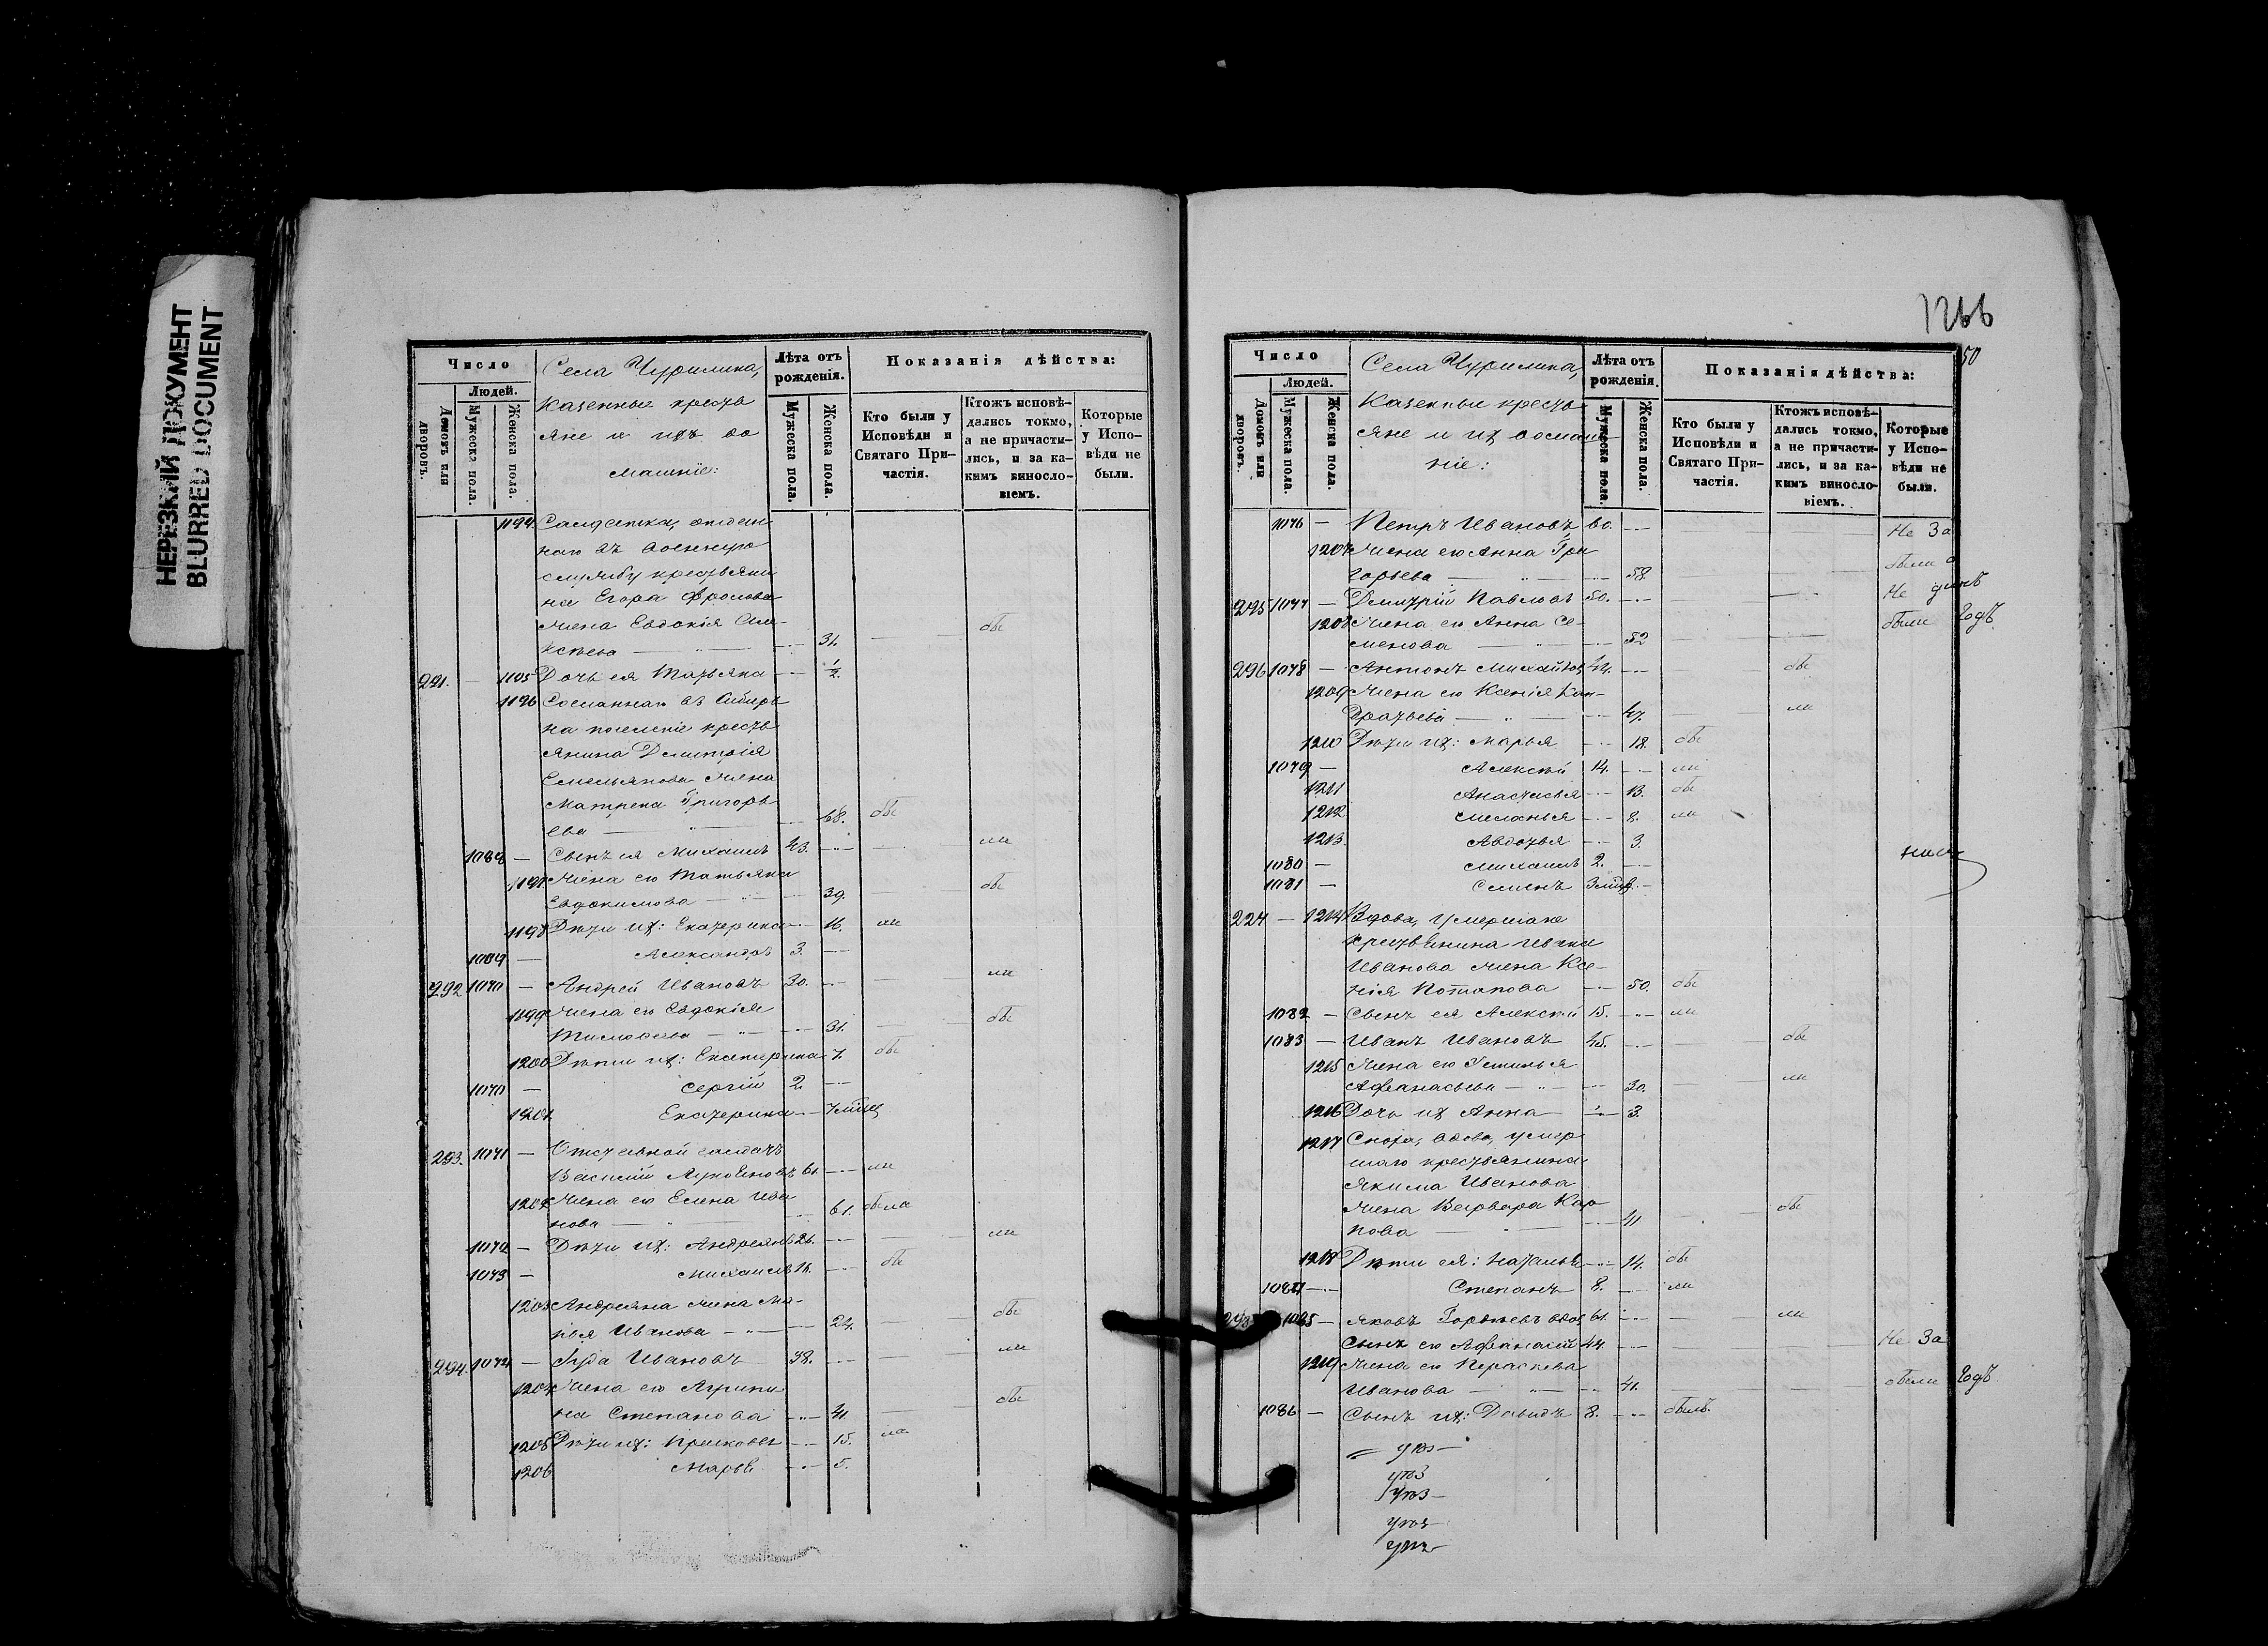 НЕРЕЗКИЙ ДОКУМЕНТ
BLURRED DOCUMENT
Число
Людей.
Домовъ или дворовъ.
Мужеска пола.
Женска пола.
Села Чурилина,
Казенные кресть
яне и ихъ до
машніе:
Лѣта отъ рожденія.
Мужеска пола.
Женска пола.
Показанія дѣйства:
Кто были у Исповѣди и Святаго Причастія.
Ктожъ исповѣ-
дались токмо,
а не причасти-
лись, и за ка-
кимъ винословіемъ.
Которые у Испо-
вѣди не были.
1194. Солдатка, отдан
наго въ военную
службу крестьяни
на Егора Фролова
жена Евдокія Але-
ксѣева 31. бы
291. 1195 Дочь ея Татьяна ½.
1196 Сосланнаго въ Сибирь
на поселеніе кресть
янина Дмитрія
Емельянова жена
Матрена Григорь
ева 68. бы
1068 Сынъ ея Михаилъ 43. ли
1197 Жена его Татьяна
Евдокимова 39. бы
1198 Дѣти их: Екатерина 16. ли
1069 Александръ 3.
292 1070 Андрей Ивановъ 30. ли
1199 Жена его Евдокія
Тимофеева 31. бы
1200 Дѣти их: Екатерина 7. бы
1070 Сергій 2
1201 Екатерина 7 мѣсц
293. 1071 Отставной солдатъ
Василий 61. ли
1202 Жена его Елена Ива
нова 61. была
1072 Дѣти их: Андреянъ 26. ли
1073 Михаилъ 16. бы
1203 Андреяна жена Ма-
рья Иванова 24. бы
294. 1074 Іуда Ивановъ 38. ли
1204 Жена его Агрипи
на Степанова 41. бы
1205 Дѣти их: Прасковья 15. ла
1206 Марья 5.
1266
50
Число
Людей.
Домовъ или дворовъ.
Мужеска пола.
Женска пола.
Села Чурилина,
Казенные кресть
яне и их домаш
ніе:
Лѣта отъ рожденія.
Мужеска пола.
Женска пола.
Показанія дѣйства:
Кто были у Исповѣди и Святаго Причастія.
Ктожъ исповѣ-
дались токмо,
а не причасти-
лись, и за ка-
кимъ винословіемъ.
Которые у Испо-
вѣди не были.
1076 Петръ Ивановъ 60. Не За
1207 Жена его Анна Гри
горьева 58. были о
295 1077 Дмитрій Павловъ 50. Не динъ
1208 Жена его Анна Се-
менова 52 были Годъ
296 1078 Антонъ Михайлов 44. бы
1209 Жена его Ксенія Кон-
дратьева 47. ли
1210 Дѣти их: Марья 18. бы
1079 Алексѣй 14. ли
1211 Анастасья 13. бы
1212 Меланья 8. ли
1213 Авдотья 3.
1080 Михаилъ 2.
1081 Семенъ 3 мѣсц.
1214 Вдова, умершаго
крестьянина Ивана
Иванова жена Ксе-
нія Потапова 50. бы
1082 Сынъ ея Алексѣй 15. ли
1083 Иванъ Ивановъ 45. бы
1215 Жена его Устинья
Афанасьева 30. ли
1216 Дочь их Анна 3.
1217 Сноха, вдова, умер
шаго крестьянина
Якима Иванова
жена Варвара Кар
пова 41 бы
1218 Дѣти ея: Наталья 14. бы
1084 Степанъ 8. ли
1085 Яковъ Гордѣевъ вдов 61. ли
Сынъ его Афанасій 44. Не За
1219 Жена его Параскева
Иванова 41. были Годъ
1086 Сынъ их: Давидъ 8. былъ.